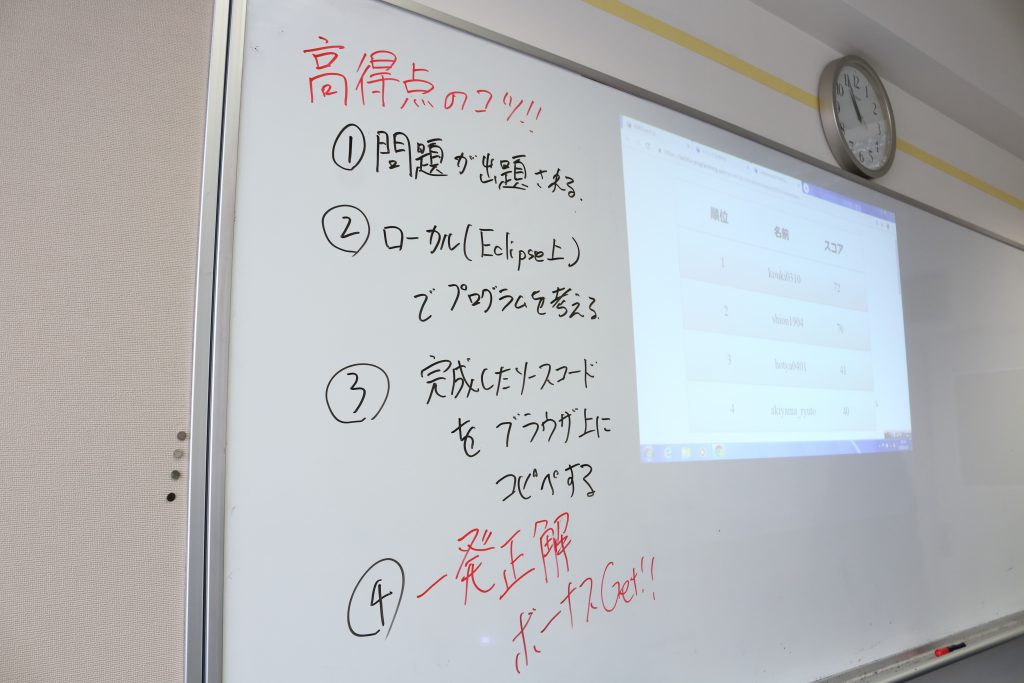 高得点のコツ!!
① 問題が出題される.
② ローカル(Eclipse上)
でプログラムを考える.
③ 完成したソースコード
を ブラウザ上に
コピペする
④ 一発正解
ボーナスGet!!
順位 名前 スコア
1 kouki0310 72
2 70
3 hotya0401 41
4 akiyama_ryuto 40